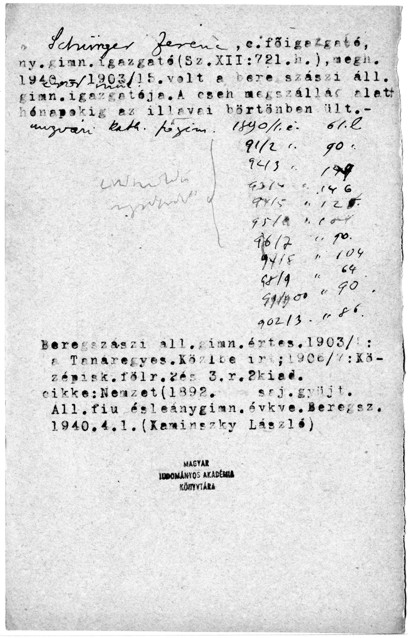 Schürger Ferenc, c.főigazgató,
ny.gimn.igazgató(Sz.XII:721.h.),megh.
1940. 1903/15.volt a beregszászi áll.
gimn.igazgatója.A cseh megszállás alatt
hónapokig az illavai börtönben ült.-
ungvári kath. főgim. 1890/1.é. 61.l
91/2 " 90
94/3 "
" 146
"
95/6 "
96/7 " 90.
" 104
98/9 " 64
" 90
902/3 " 86
Beregszászi áll.gimn.értes.1903/4:
a Tanáregyes.Közlbe írt;1906/7:Kö-
zépisk.földr.2és 3.r.2kiad.
cikke:Nemzet(1892. saj.gyüjt.
Áll.fiu ésleánygimn.évkve.Beregsz.
1940.4.1.(Kaminszky László)
MAGYAR
TUDOMÁNYOS AKADÉMIA
KÖNYVTÁRA